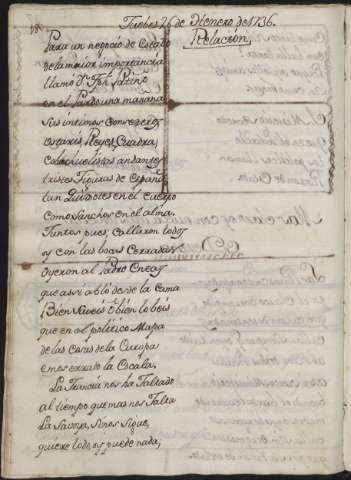 Jueves 26 de Henero de 1736.
Relación,
Para un negocio de Estado
de la maior importancia
llamó Dn. Jph. Patiño
en el Pardo una mañana
sus intimos Consexeros
Ostariz, Reyes, Cuadra,
Cobachuelistas andantes
tristes Figuras de España
tan Quixotes en el cuerpo
como Sanchos en el alma.
Juntos pues, callaron todos
y con las bocas cerradas
oyeron al Padre Eneas
que assi abló desde la Cama
Bien saveis ó bien lo leis
que en el politico Mapa
de las cosas de la Europa
emos errado la Escala.
La Francia nos ha faltado
al tiempo que mas nos falta
La Savoya, si nos sigue,
quiere todo, y puede nada,